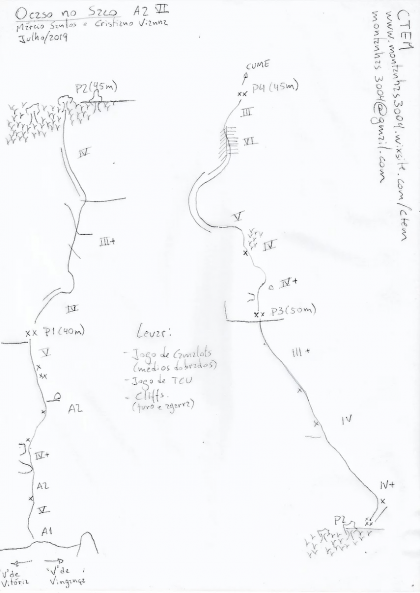 Ocaso no Saco A2 VI
Márcio Santos e Cristiano Vianna
Julho/2019
CTEM
www.montanhas3004.wixsite.com/ctem
montanhas3004@gmail.com
P2(45m)
IV
III+
IV
P1(40m)
V
A2
IV+
A2
V
A1
"V" de
Vitória
"V" de
Vingança
Levar:
- Jogo de Camalots
(médios dobrados)
- Jogo de TCU
- Cliffs
(furo e agarra)
CUME
P4(45m)
III
VI
V
IV
IV+
P3(50m)
III+
IV
IV+
P2